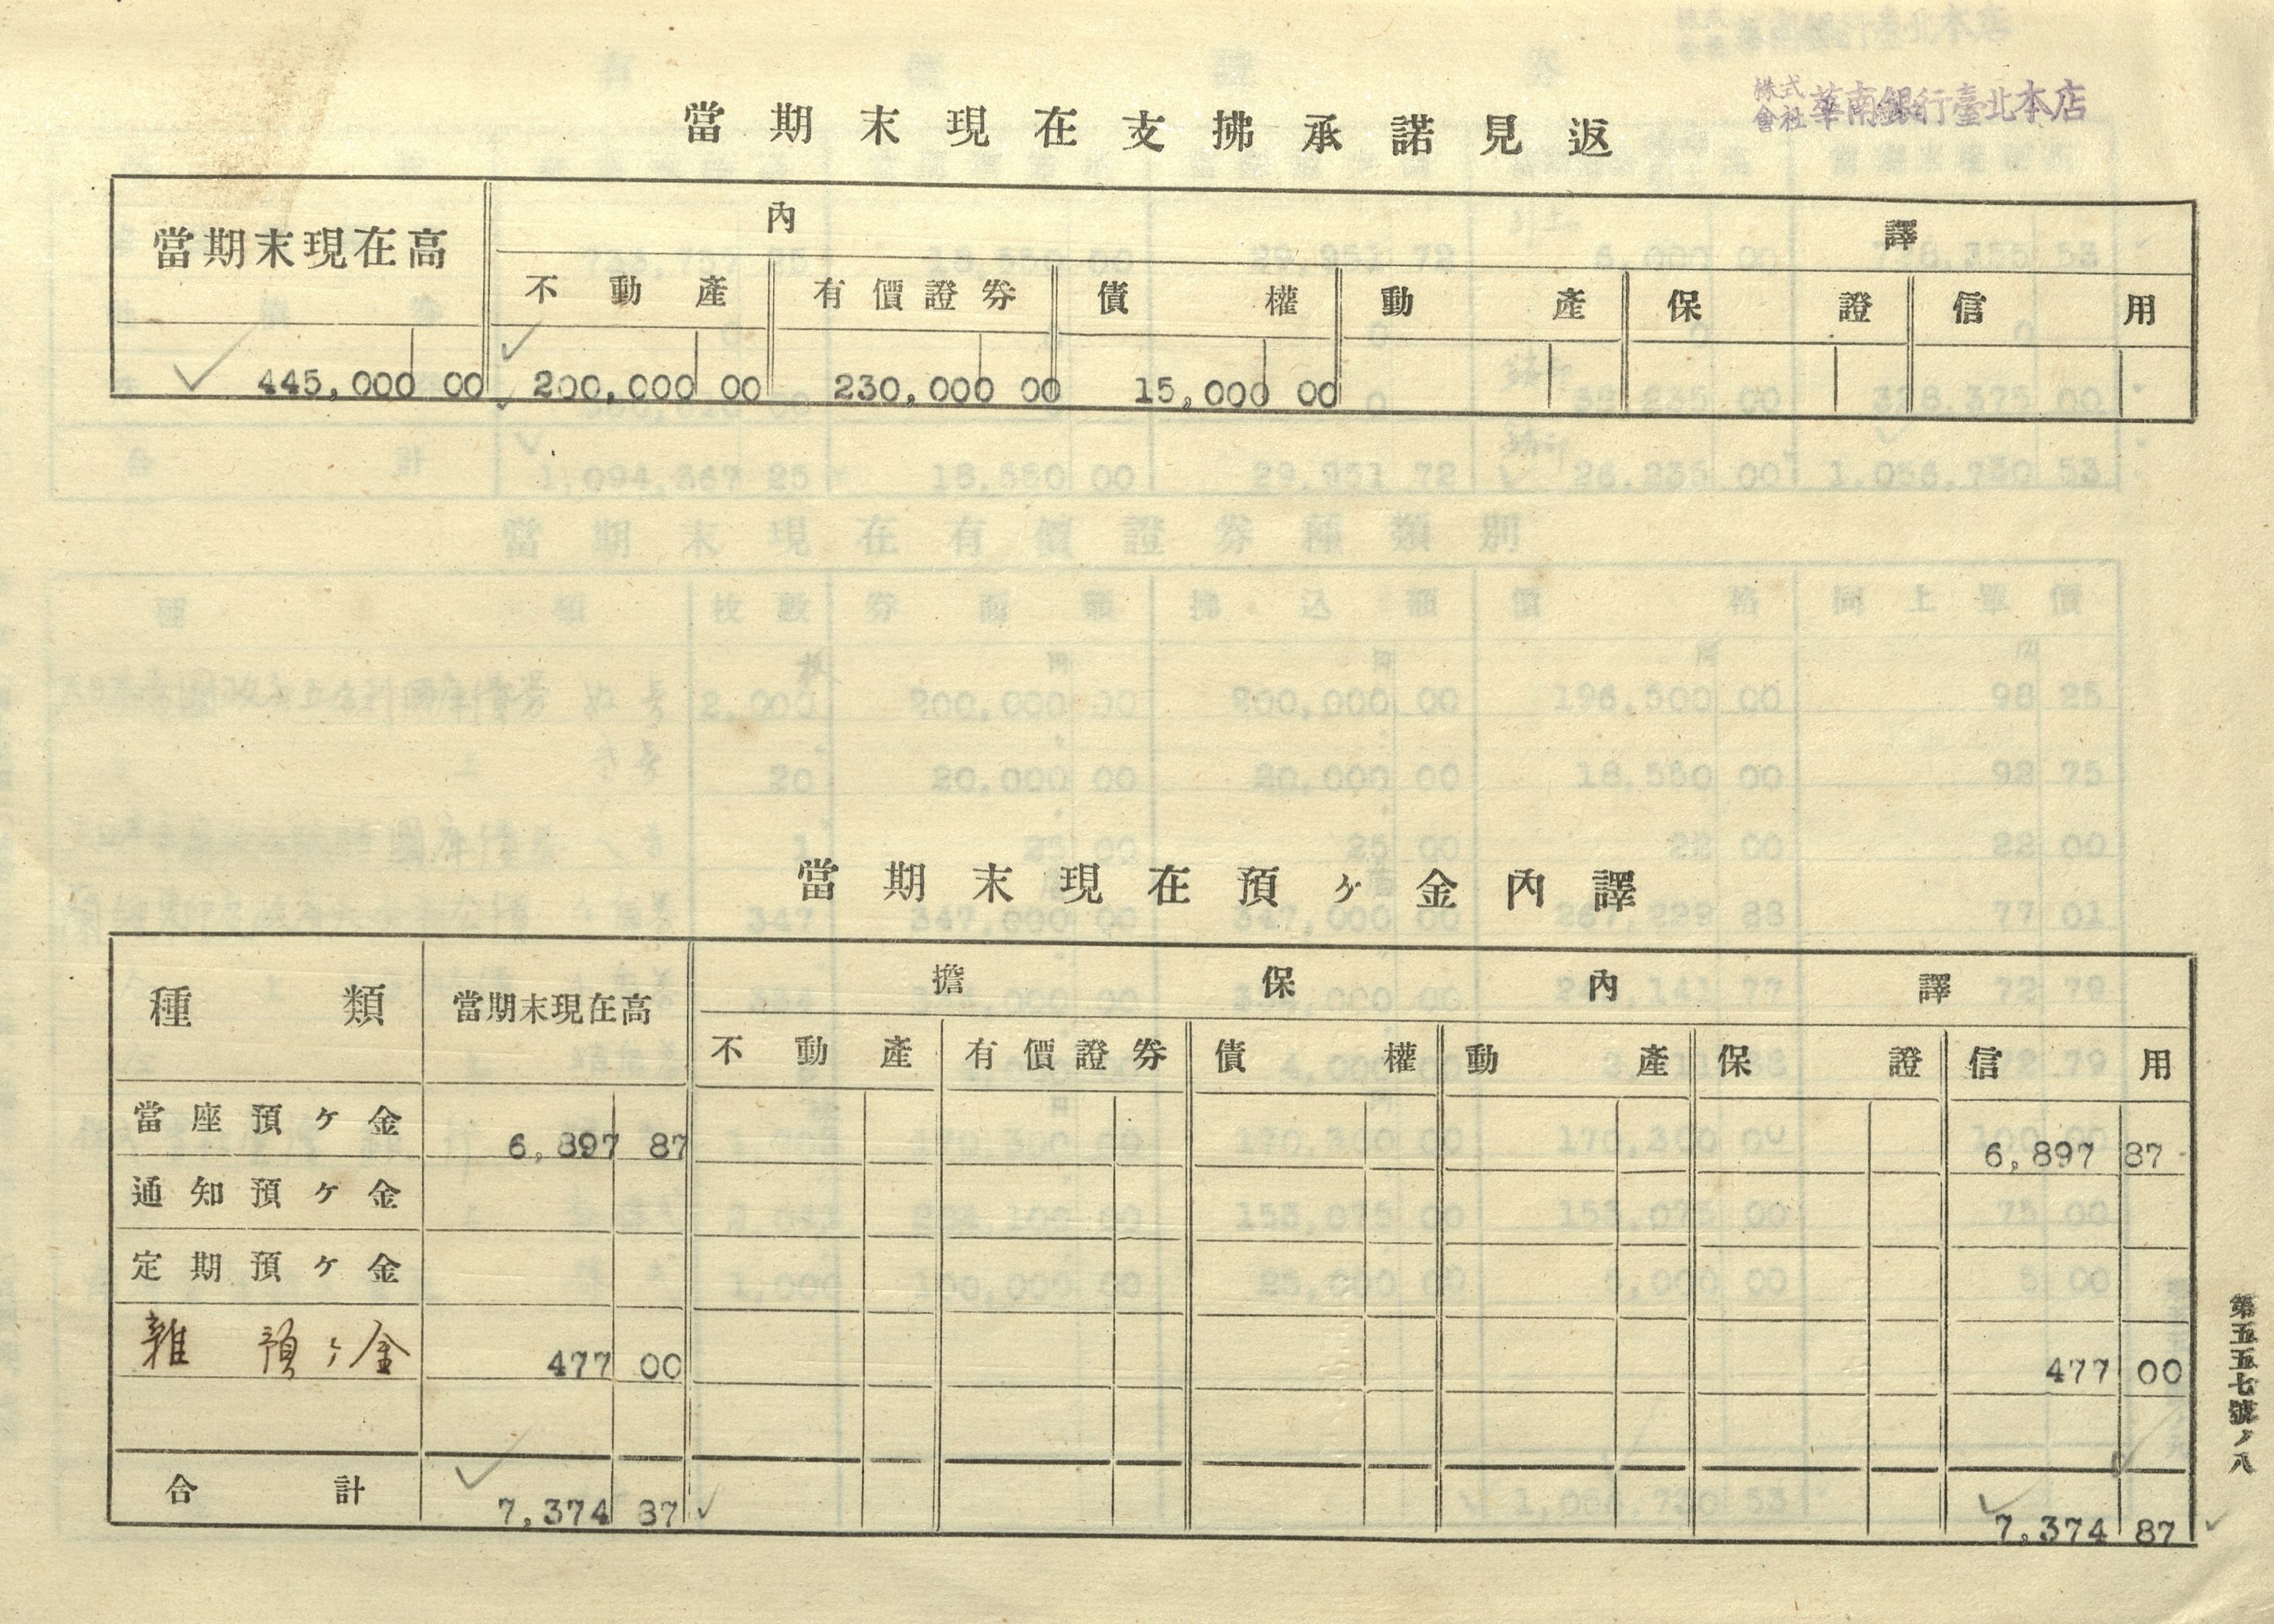 株式會社 華南銀行臺北本店
當期末現在支拂承諾見返
當期末現在高 內譯
不動產 有價證券 債權 動產 保證 信用
445,000 00 200,000 00 230,000 00 15,000 00
當期末現在預ヶ金內譯
種類 當期末現在高 擔保內譯
不動產 有價證券 債權 動產 保證 信用
當座預ヶ金 6,897 87 6,897 87
通知預ヶ金
定期預ヶ金
雜預ヶ金 477 00 477 00
合計 7,374 87 7,374 87
第五五七號ノ八